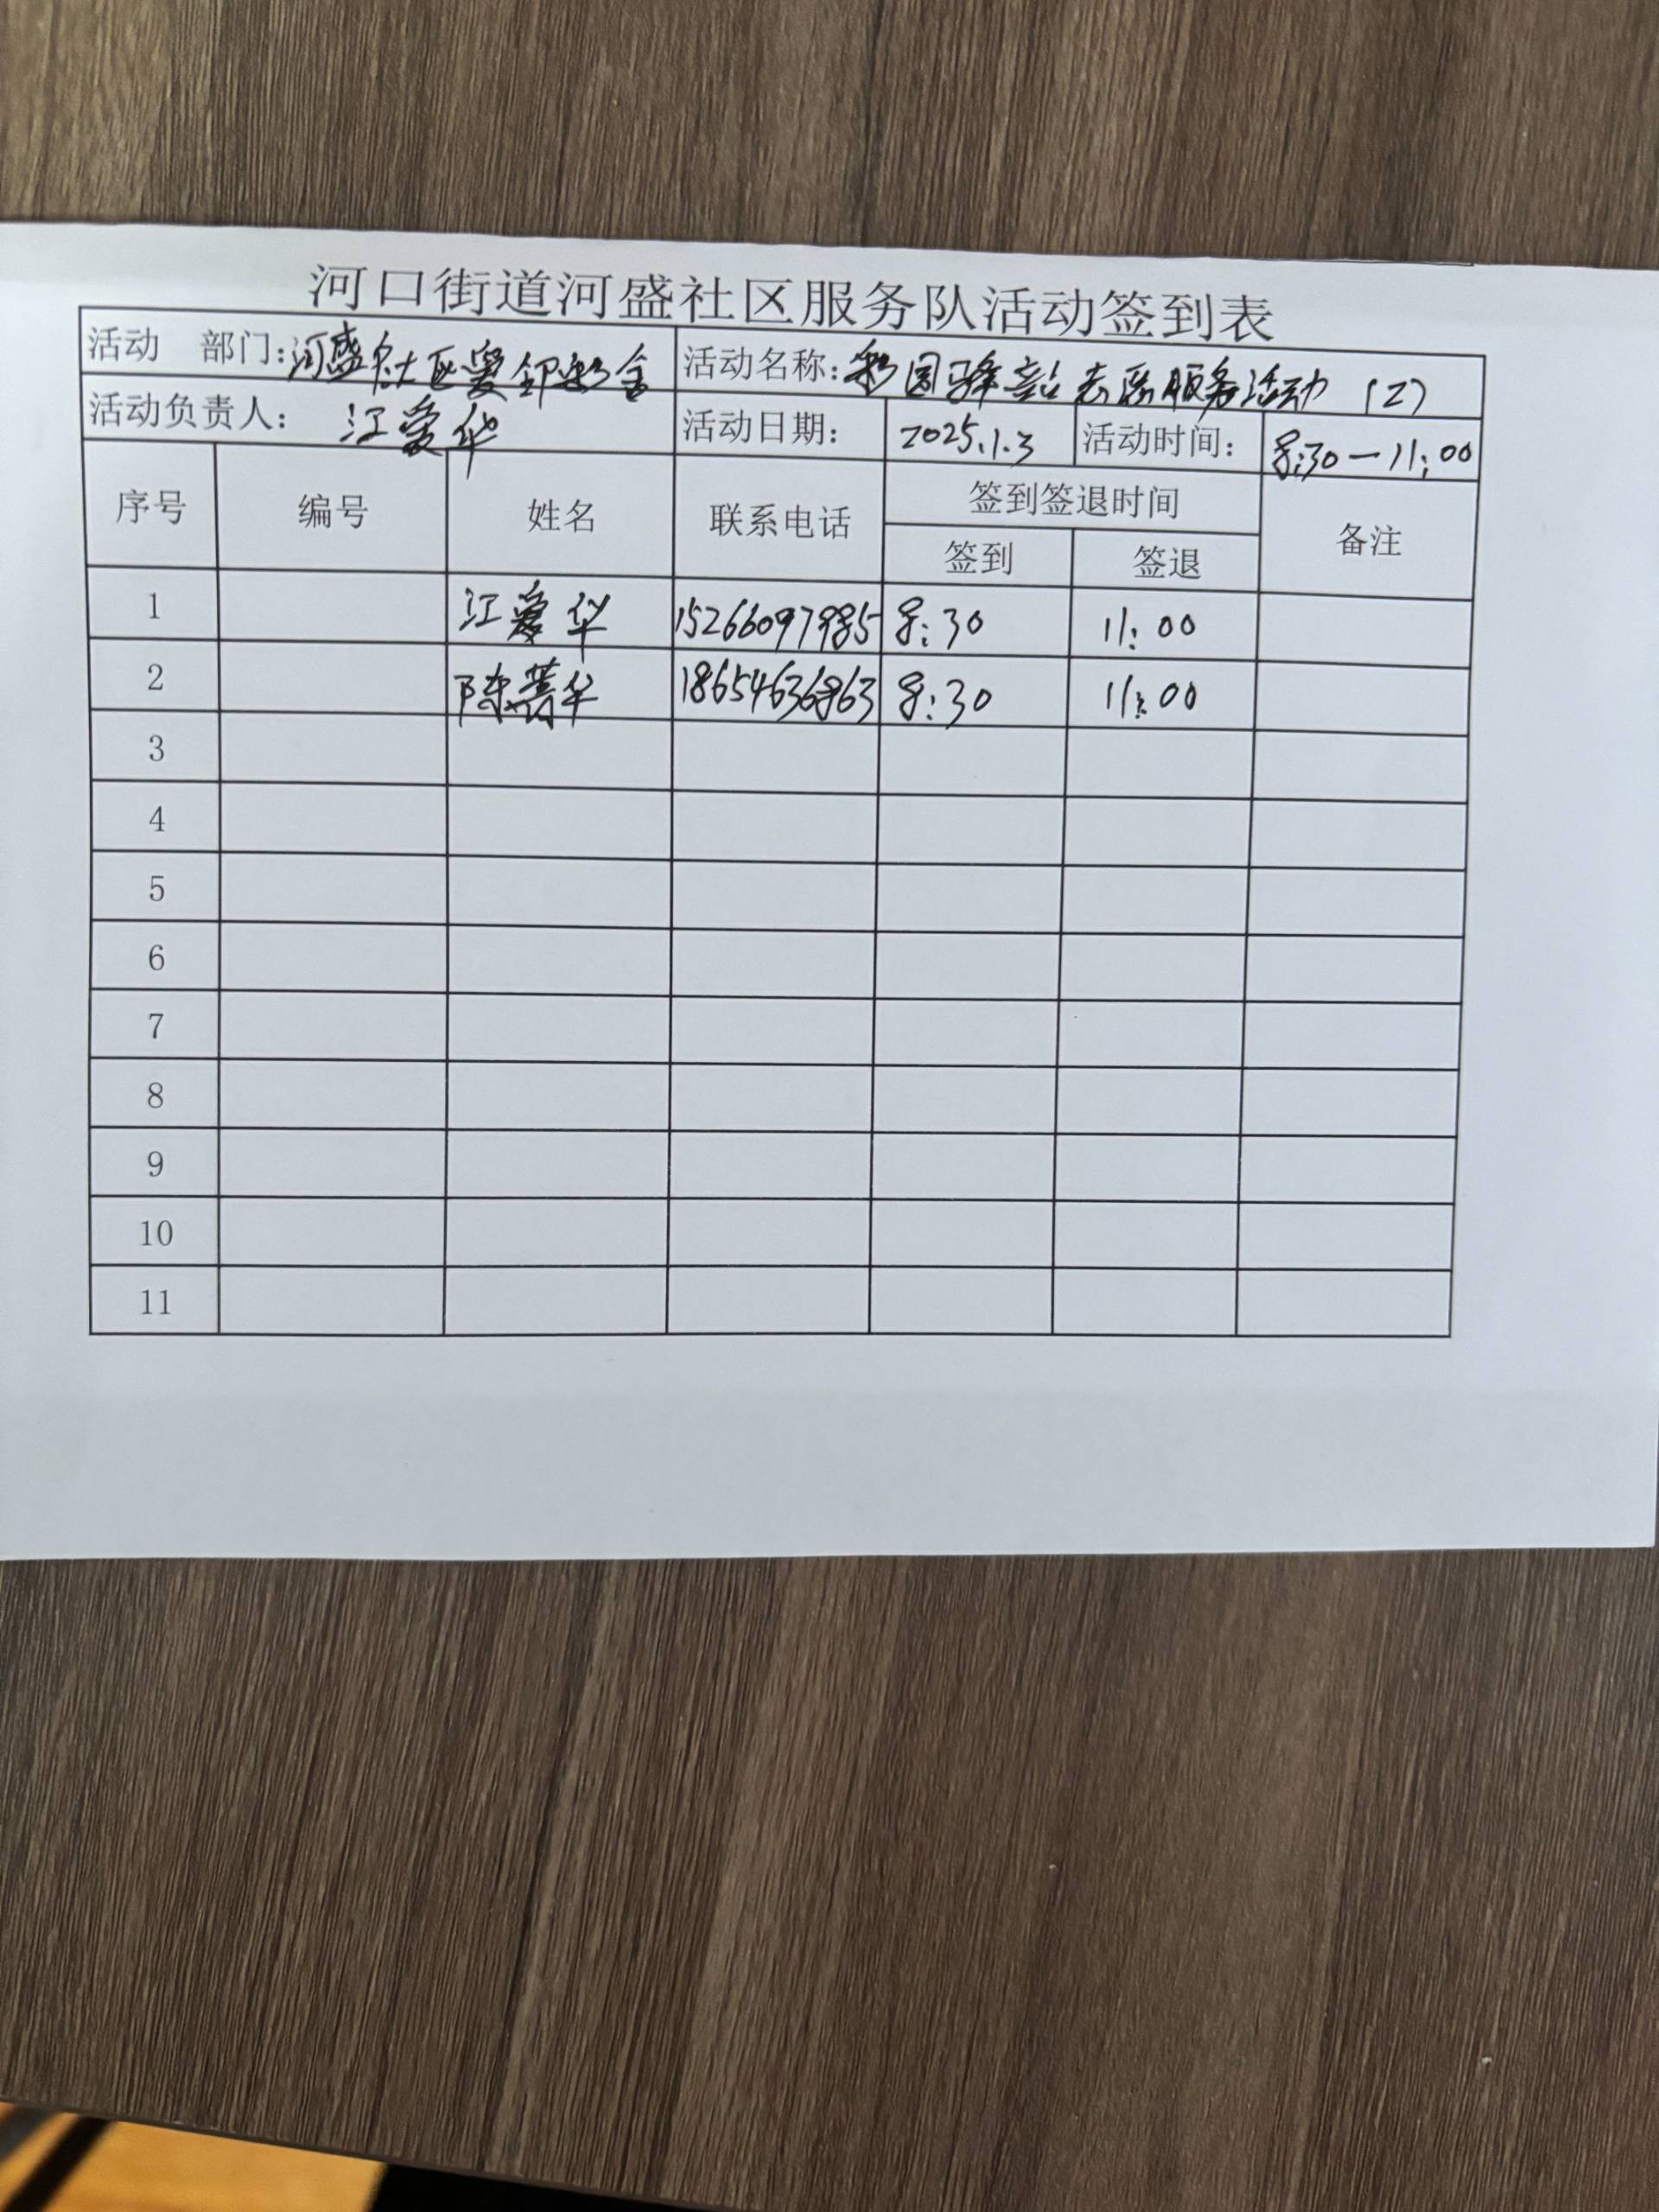 河口街道河盛社区服务队活动签到表
活动 部门：河盛社区爱邻 活动名称：驿站志愿服务活动（2）
活动负责人： 江爱华 活动日期： 2025.1.3 活动时间： 8:30—11:00
序号 编号 姓名 联系电话 签到签退时间 备注
签到 签退
1 江爱华 15266097985 8:30 11:00
2 陈菁华 18654636863 8:30 11:00
3
4
5
6
7
8
9
10
11